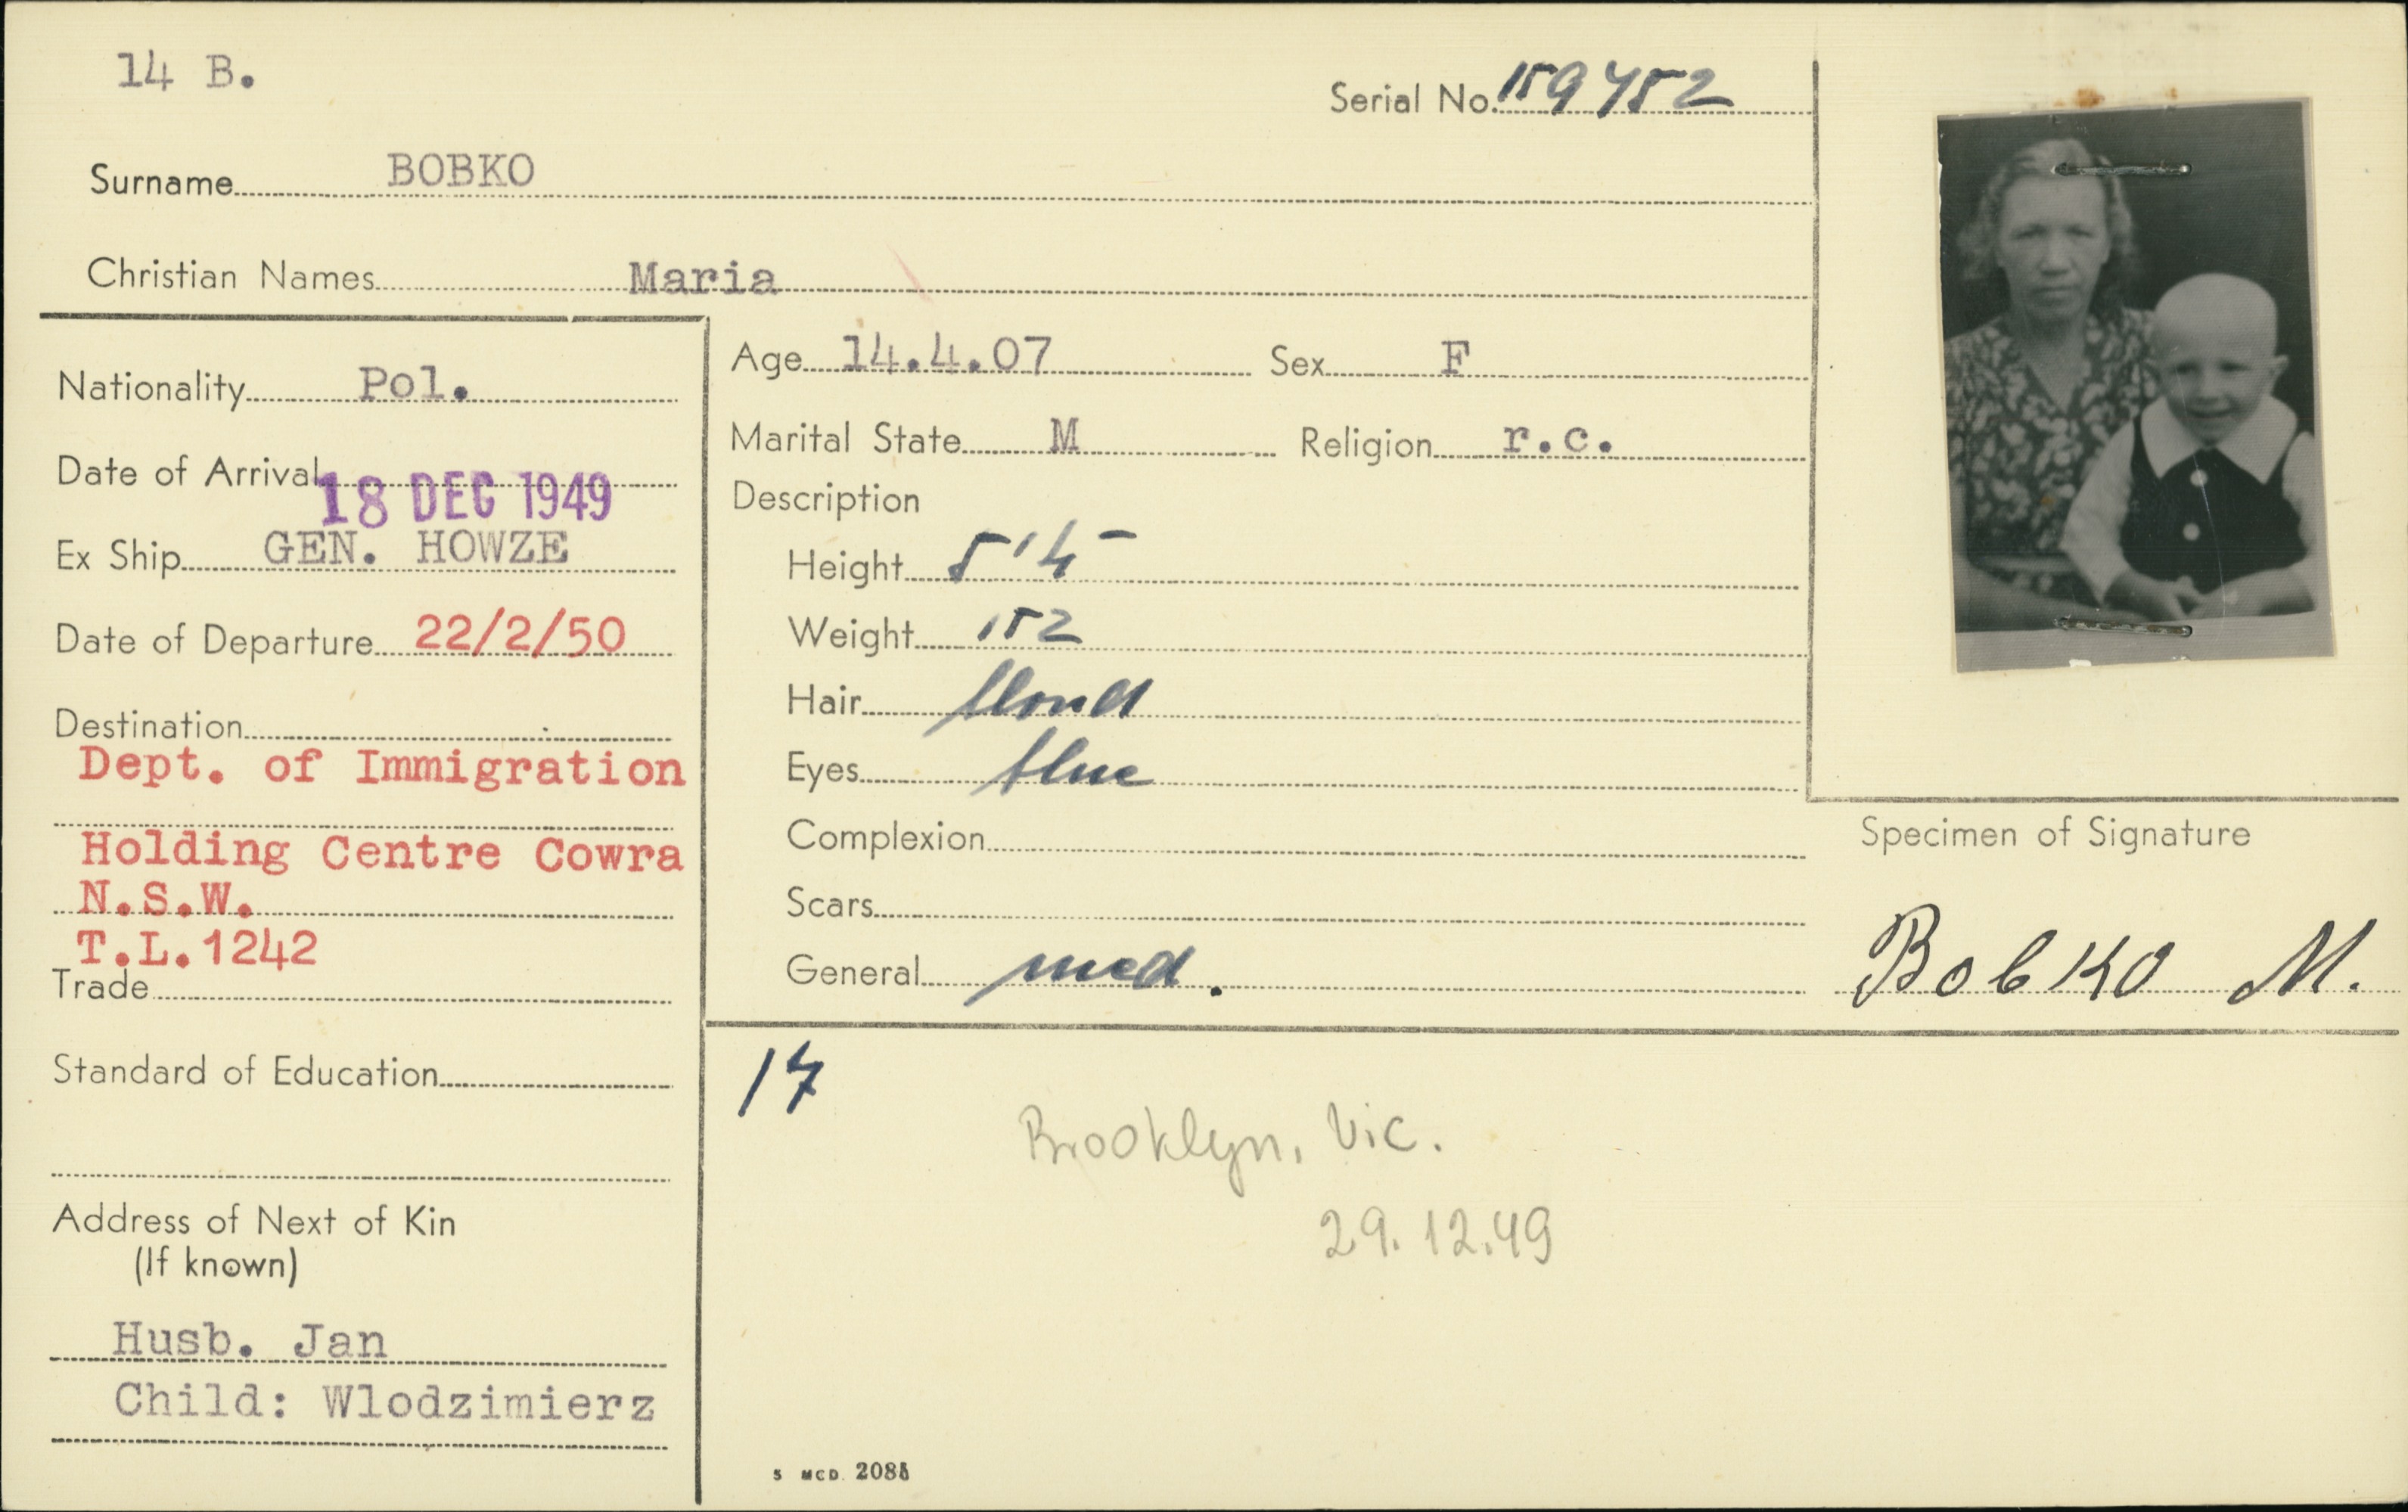 14 B.
Serial No. 159452
Surname BOBKO
Christian Names Maria
Nationality Pol.
Date of Arrival 18 DEC 1949
Ex Ship GEN. HOWZE
Date of Departure 22/2/50
Destination
Dept. of Immigration
Holding Centre Cowra
N.S.W.
T.L.1242
Trade
Standard of Education
Address of Next of Kin
(If known)
Husb. Jan
Child: Wlodzimierz
Age 14.4.07 Sex F
Marital State M Religion r.c.
Description
Height 5'4
Weight 152
Hair blond
Eyes blue
Complexion
Scars
General med.
Specimen of Signature
Bobko M.
17
Brooklyn, Vic.
29.12.49
S MCD.